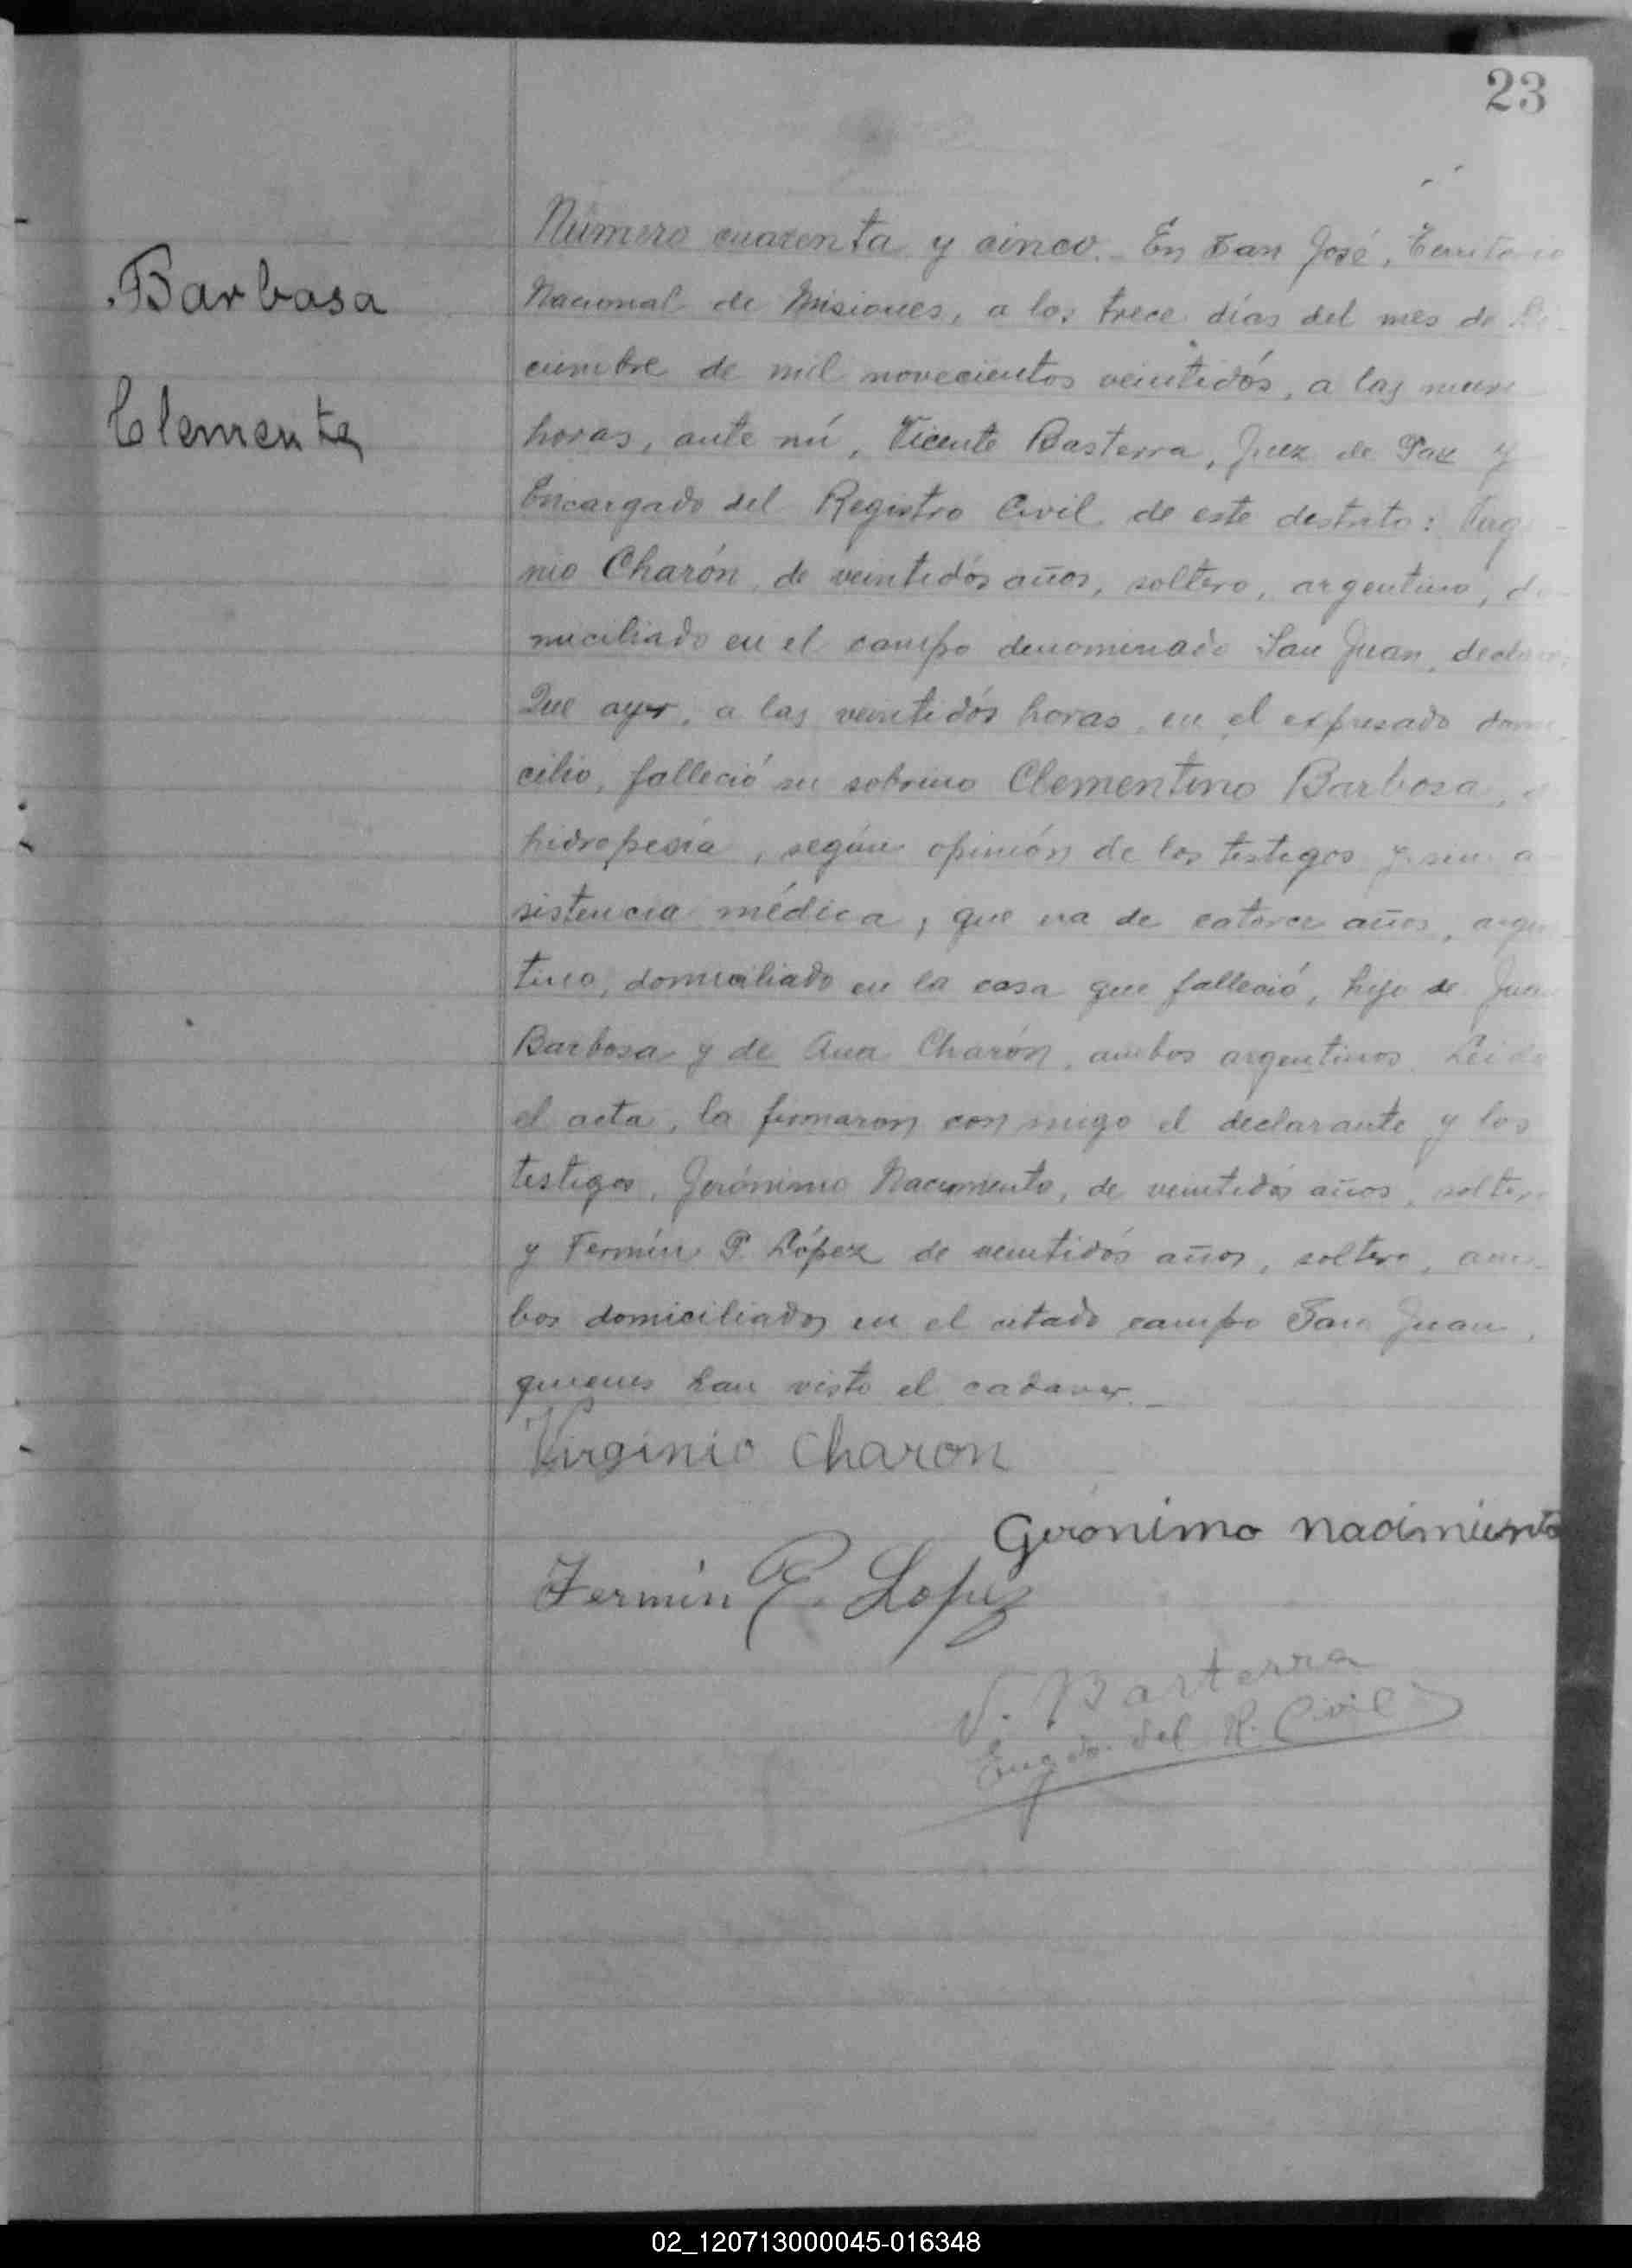 23
Barbosa
Clemente
Número cuarenta y cinco. En San José, Territorio
Nacional de Misiones, a los trece días del mes de Di-
ciembre de mil novecientos veintidós, a las nueve
horas, ante mí, Vicente Basterra, Juez de Paz y
Encargado del Registro Civil de este distrito: Virgi-
nio Charón, de veintidós años, soltero, argentino, do-
miciliado en el campo denominado San Juan, declaró:
Que ayer, a las veintidós horas, en el expresado domi-
cilio, falleció su sobrino Clementino Barbosa, de
hidropesía, según opinión de los testigos y sin a-
sistencia médica, que era de catorce años, argen-
tino, domiciliado en la casa que falleció, hijo de Juan
Barbosa y de Ana Charón, ambos argentinos. Leida
el acta, la firmaron conmigo el declarante y los
testigos, Gerónimo Nacimiento, de veintidós años, soltero
y Fermín P. López de veintidós años, soltero, am-
bos domiciliados en el citado campo San Juan,
quienes han visto el cadaver.
Virginio Charon
Gerónimo nacimiento
Fermín P. Lopez
V. Basterra
Engdo. del R. Civil
02_120713000045-016348